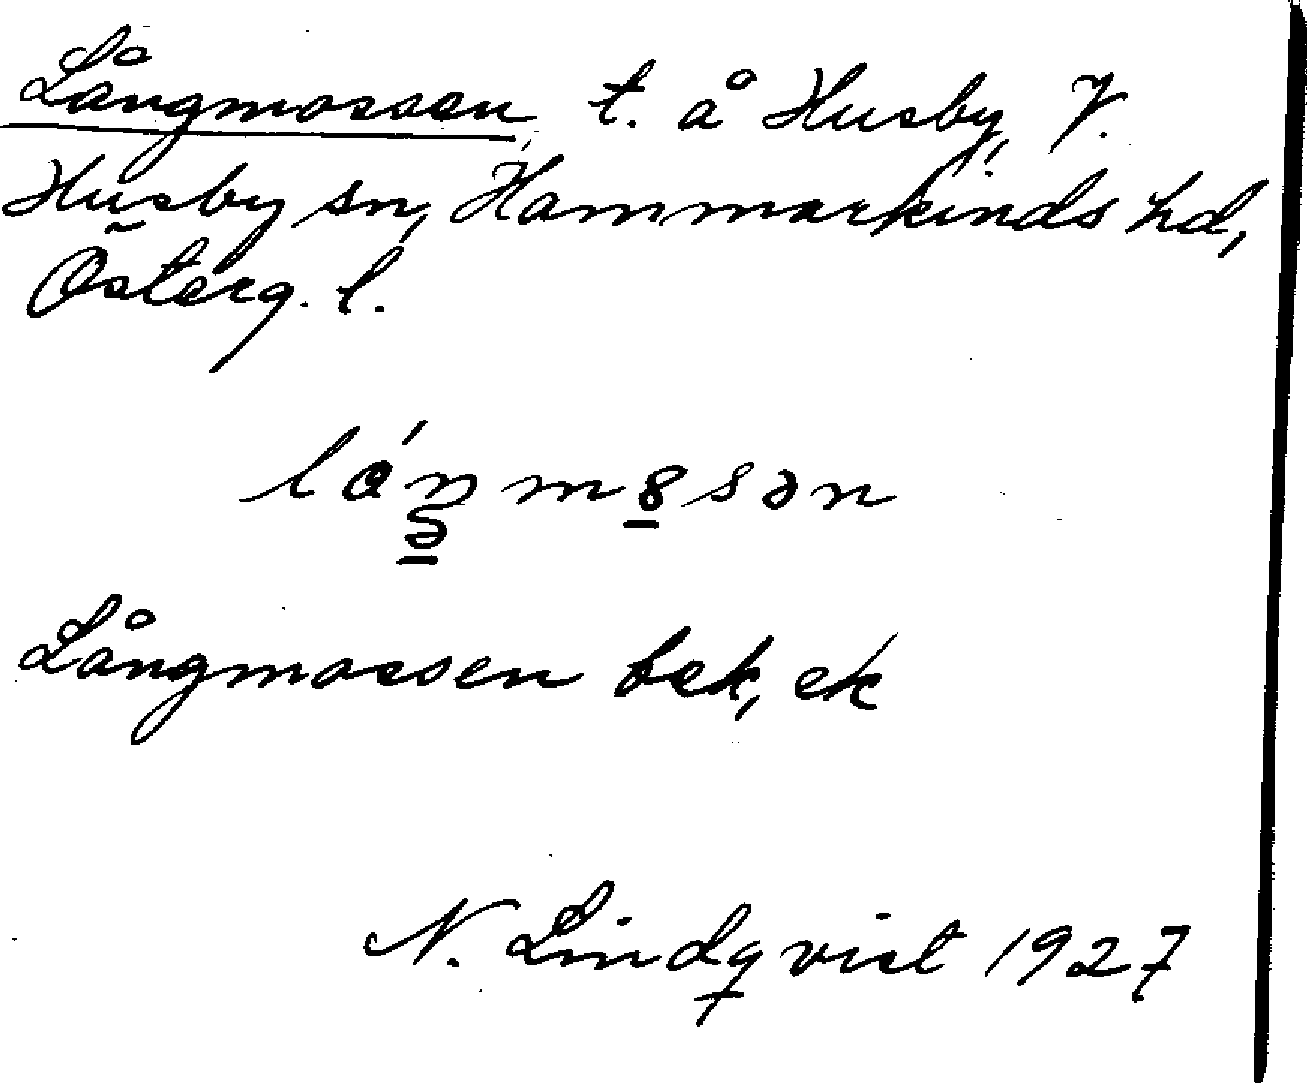 Långmossen, t. å Husby, V.
Husby sn, Hammarkinds hd,
Österg. l.
Långmossen bek, ek
N. Lindqvist 1927